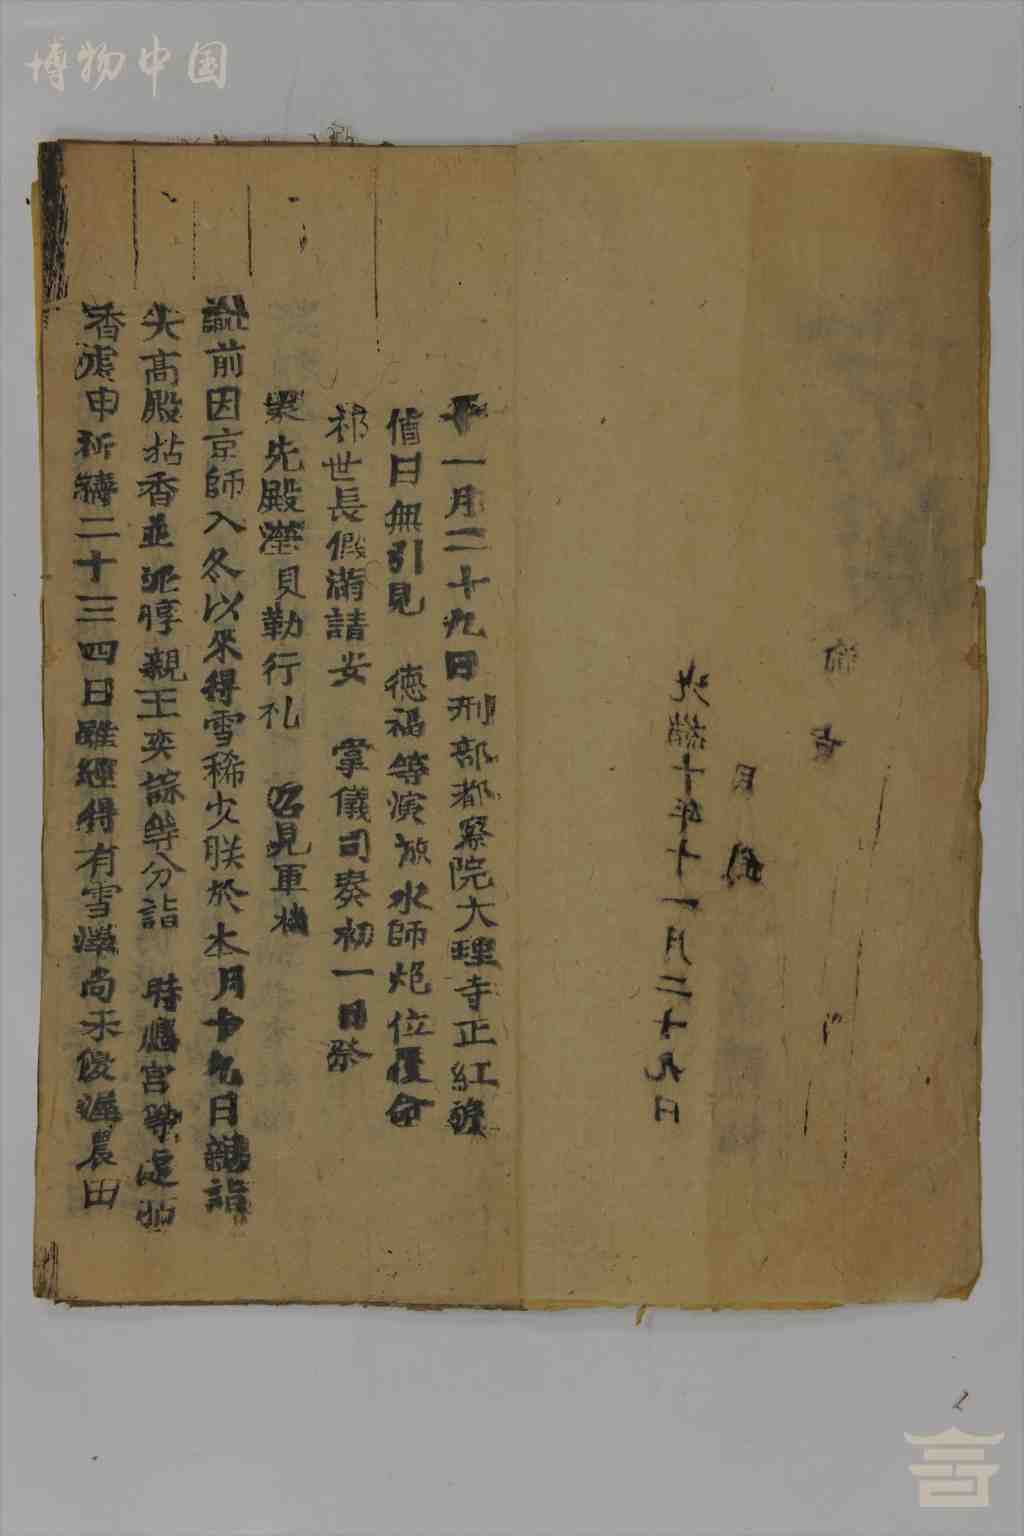 博物中国
諭旨
目錄
光緒十年十一月二十九日
十一月二十九日刑部都察院大理寺正紅旗
值日無引見 德福等演放水師炮位覆命
祁世長假滿請安 掌儀司奏初一日祭
奉先殿瀅貝勒行礼 召見軍機
諭前因京師入冬以來得雪稀少朕於本月十九日親詣
大高殿拈香並派惇親王奕誴等分詣 時應宮等處拈
香虔申祈禱二十三四日雖經得有雪澤尚未優渥農田